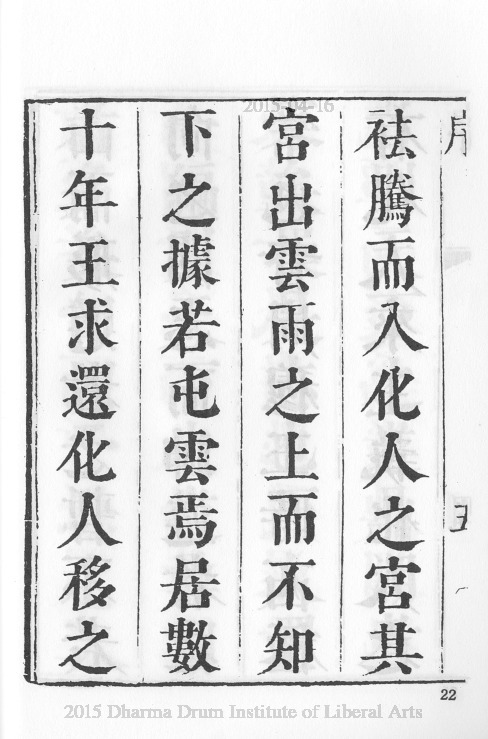 序
五
祛騰而入化人之宮其
宮出雲雨之上而不知
下之據若屯雲焉居數
十年王求還化人移之
22
2015-04-16
2015 Dharma Drum Institute of Liberal Arts